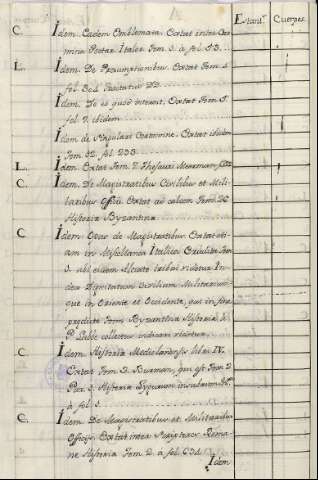 Estant.^s Cuerpos.
C. Idem. Eadem Emblemata. Extat inter Car
mina Poetar. Italor. Tom. 1. a fol. 13.
L. Idem. De Præsumptionibus. Extat Tom. 4
fol. 304 Tractatus DD.
Idem. De eo quod interest, Extat Tom. 5.
fol. 7. ibidem
Idem de Singulari Certamine. Extat ibidem
Tom. 12. fol. 293.
L. Idem. Extat Tom. 7. Thesauri Meerman
C. Idem. De Magistratibus Civilibus et Mili
taribus Offic. Extat ad calcem Tom. 26
Historiæ Byzantinæ
C. Idem. Opus de Magistratibus. Extat eti
am in Miscellanea Italica Erudita Tom
3. ab eidem Alciato tribui videtur In
dex Dignitatum Civilium Militarium
que in Oriente et Occidente, qui in fine
prædicti Tomi Byzantinæ Historiæ à
P. Labbe collectus indicam
C. Idem. Historiæ Mediolanensis libri IV.
Extat Tom. 2. Burman, qui est Tom. 2
Par. 1. Historiæ
a fol. 1.
C. Idem. De Magistratibus et Militaribus
Officijs, Extat inter Scriptores Roma
næ Historiæ Tom. 2. a fol. 634
Idem